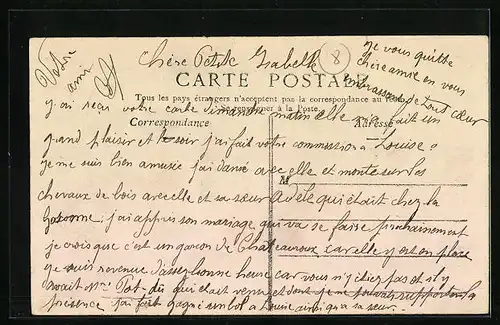 Chère Petite Isabelle
8
je vous quitte
chère amie en vous
embrassant de tout cœur
Votre
ami
CARTE POSTALE
Tous les pays étrangers n'acceptent pas la correspondance au recto
renseigner à la Poste.
Correspondance
Adresse
j'ai reçu votre carte Dimanche matin elle m'a fait un
grand plaisir et le soir j'ai fait votre commission à Louise
je me suis bien amusée j'ai dansé avec elle et monté sur les
chevaux de bois avec elle et sa sœur Adèle qui était chez la
j'ai appris son mariage qui va se faire prochainement
je crois que c'est un garçon de Chateauroux car elle y est en place
je suis revenue d'assez bonne heure car vous n'y étiez pas et il y
avait Mr Pot-du qui était venu et dont je ne pouvais supporter la
présence j'ai fait à Louise ainsi qu'à sa sœur.
M